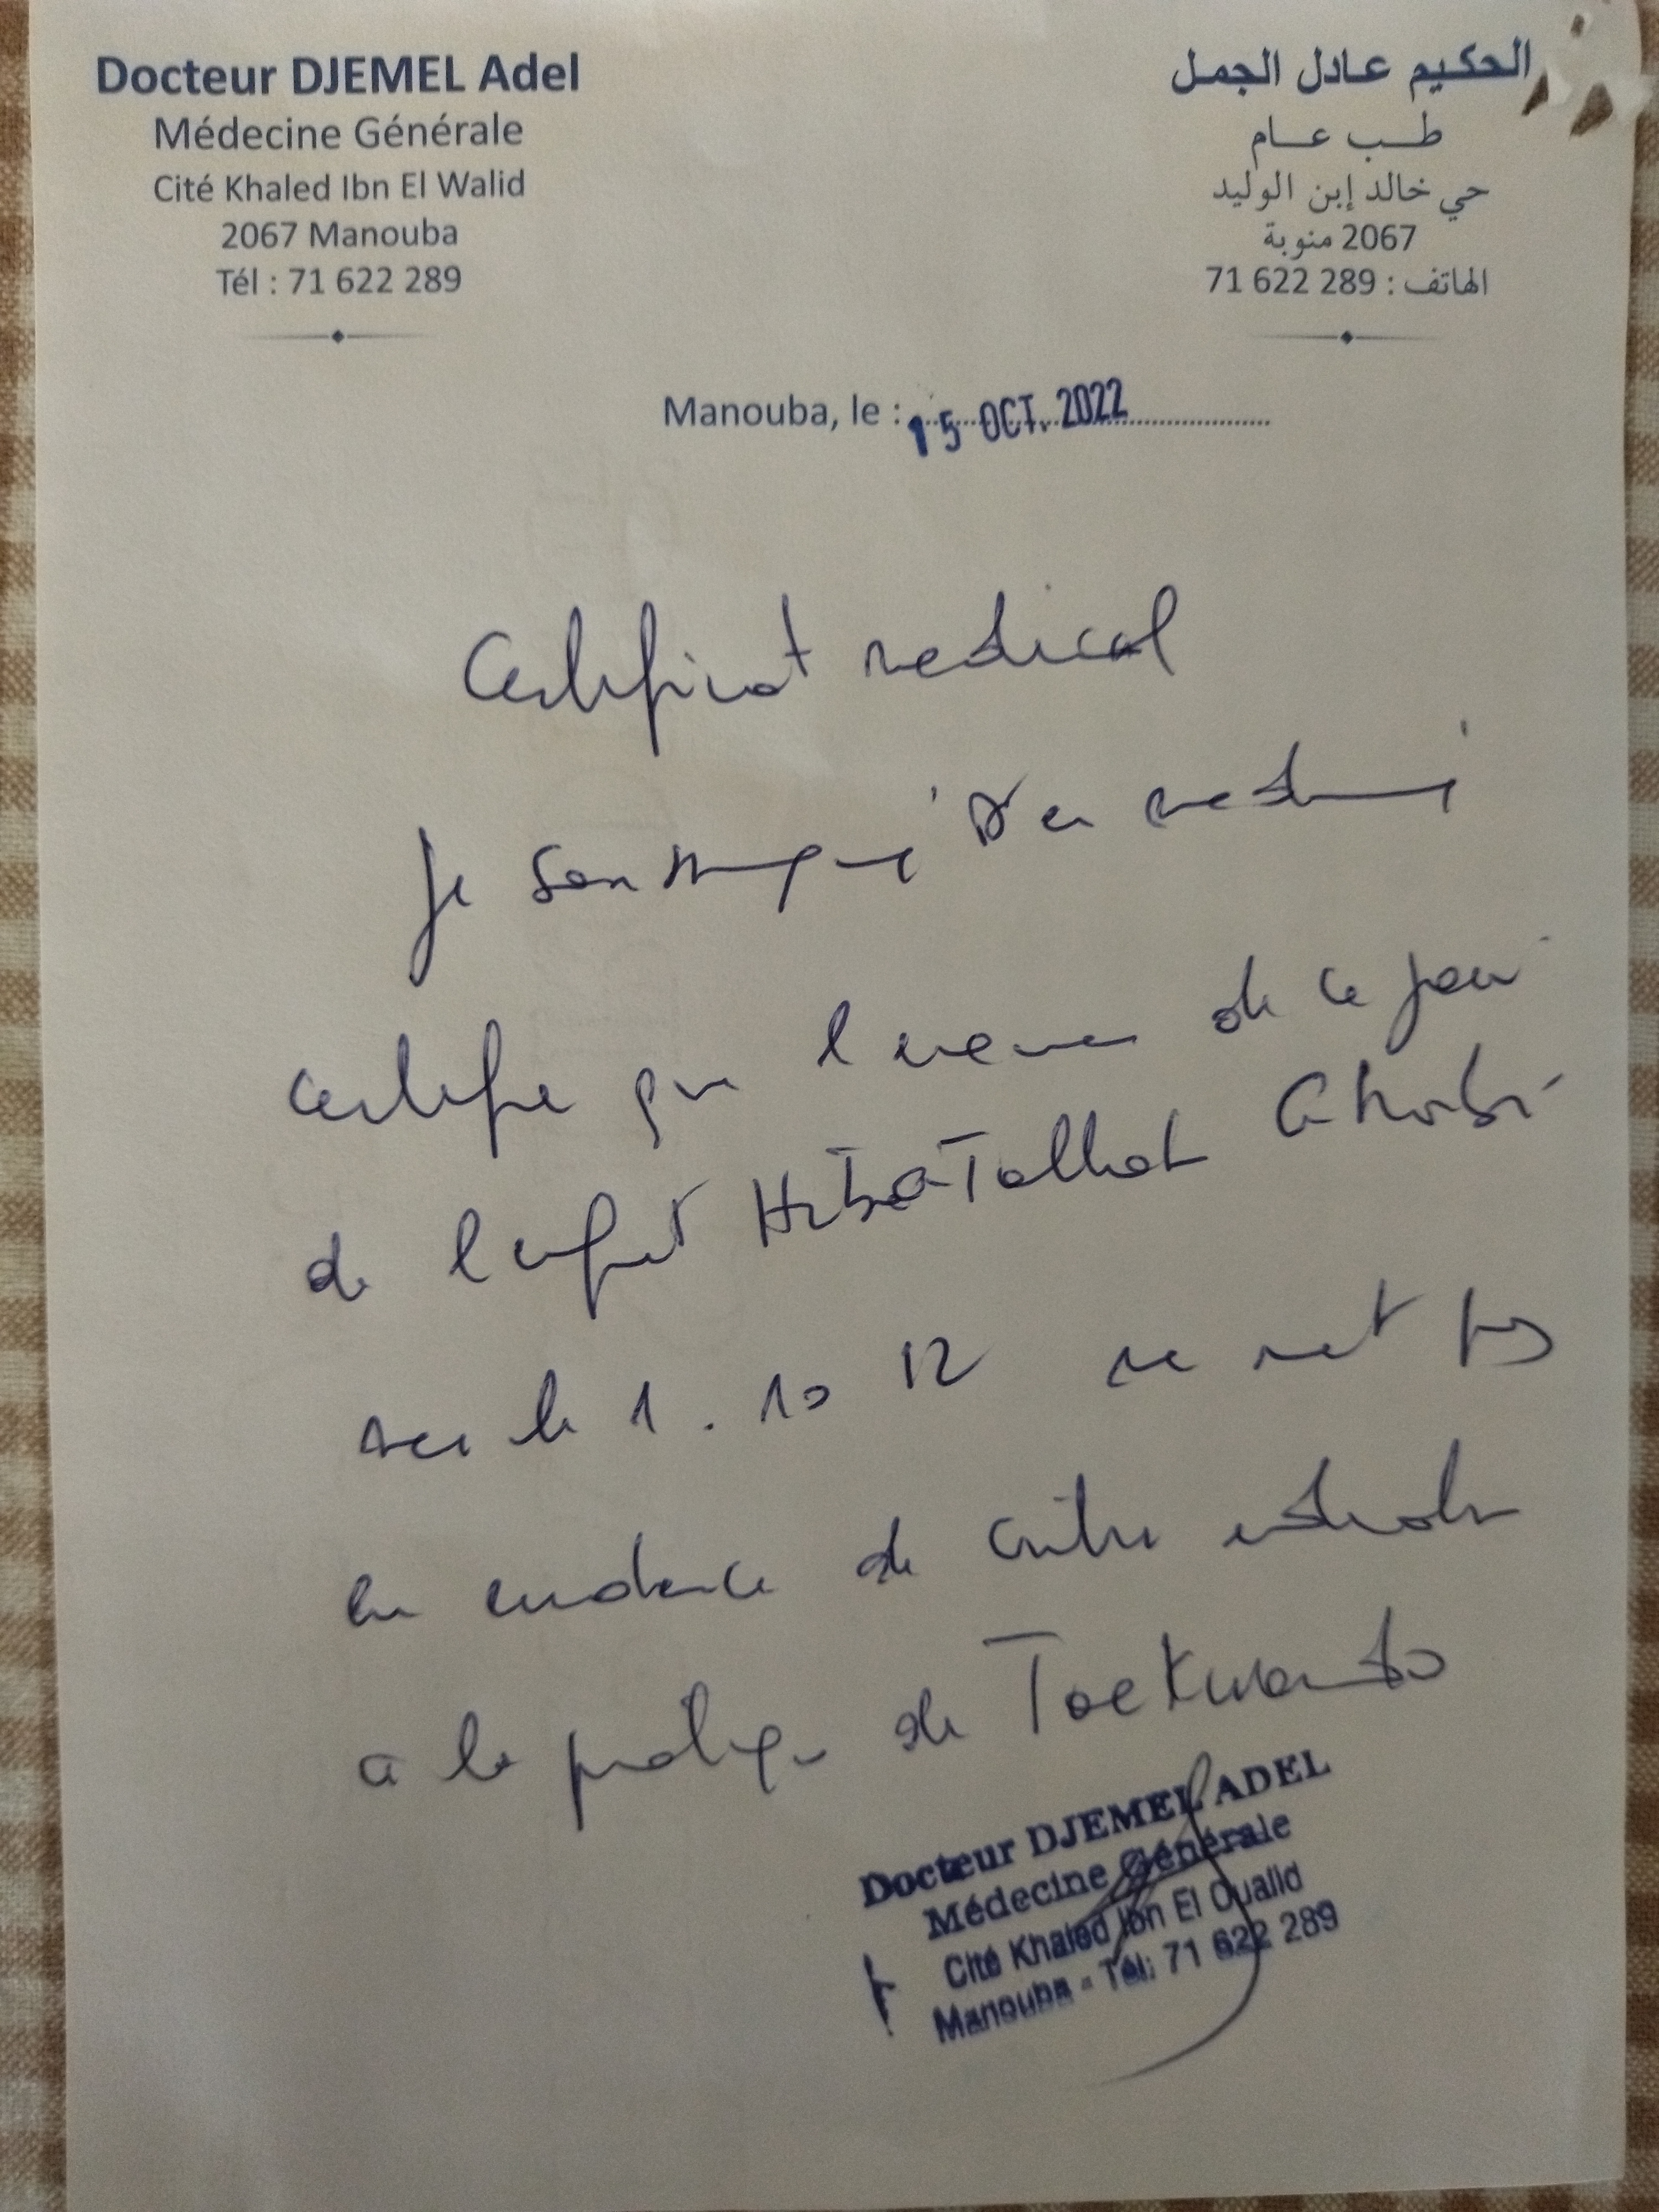 Docteur DJEMEL Adel
Médecine Générale
Cité Khaled Ibn El Walid
2067 Manouba
Tél : 71 622 289
الحكيم عادل الجمل
طب عام
حي خالد إبن الوليد
2067 منوبة
الهاتف : 71 622 289
Manouba, le : 15 OCT. 2022
Certificat medical
Je soussigné Dr en medecine
certifie que l'examen de ce jour
de l'enfant HibaTallah Gharbi
nee le 1. 10 12 ne met pas
en evidence de contre indication
a la pratique de Taekwando
Docteur DJEMEL ADEL
Médecine Générale
Cité Khaled Ibn El Oualid
Manouba - Tél: 71 622 289